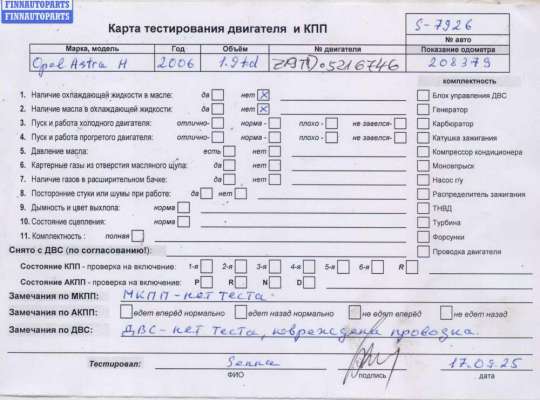 FINNAUTOPARTS
FINNAUTOPARTS
Карта тестирования двигателя и КПП
S-7926
№ авто
Марка, модель Год Объём № двигателя Показание одометра
Opel Astra H 2006 1.9td 208379
комплектность
1. Наличие охлаждающей жидкости в масле: да нет X Блок управления ДВС
2. Наличие масла в охлаждающей жидкости: да нет X Генератор
3. Пуск и работа холодного двигателя: отлично- норма - плохо - не завелся- Карбюратор
4. Пуск и работа прогретого двигателя: отлично- норма - плохо - не завелся- Катушка зажигания
5. Давление масла: есть нет Компрессор кондиционера
6. Картерные газы из отверстия масляного щупа: да нет Моновпрыск
7. Наличие газов в расширительном бачке: да нет Насос г/у
8. Посторонние стуки или шумы при работе: да нет Распределитель зажигания
9. Дымность и цвет выхлопа: норма ТНВД
10. Состояние сцепления: норма Турбина
11. Комплектность : полная Форсунки
Снято с ДВС (по согласованию!): Проводка двигателя
Состояние КПП - проверка на включение: 1-я 2-я 3-я 4-я 5-я 6-я R
Состояние АКПП - проверка на включение: P R N D
Замечания по МКПП: МКПП - нет теста.
Замечания по АКПП: едет вперёд нормально едет назад нормально не едет вперёд не едет назад
Замечания по ДВС: ДВС - нет теста, повреждена проводка.
Тестировал: 17.09.25
ФИО подпись дата